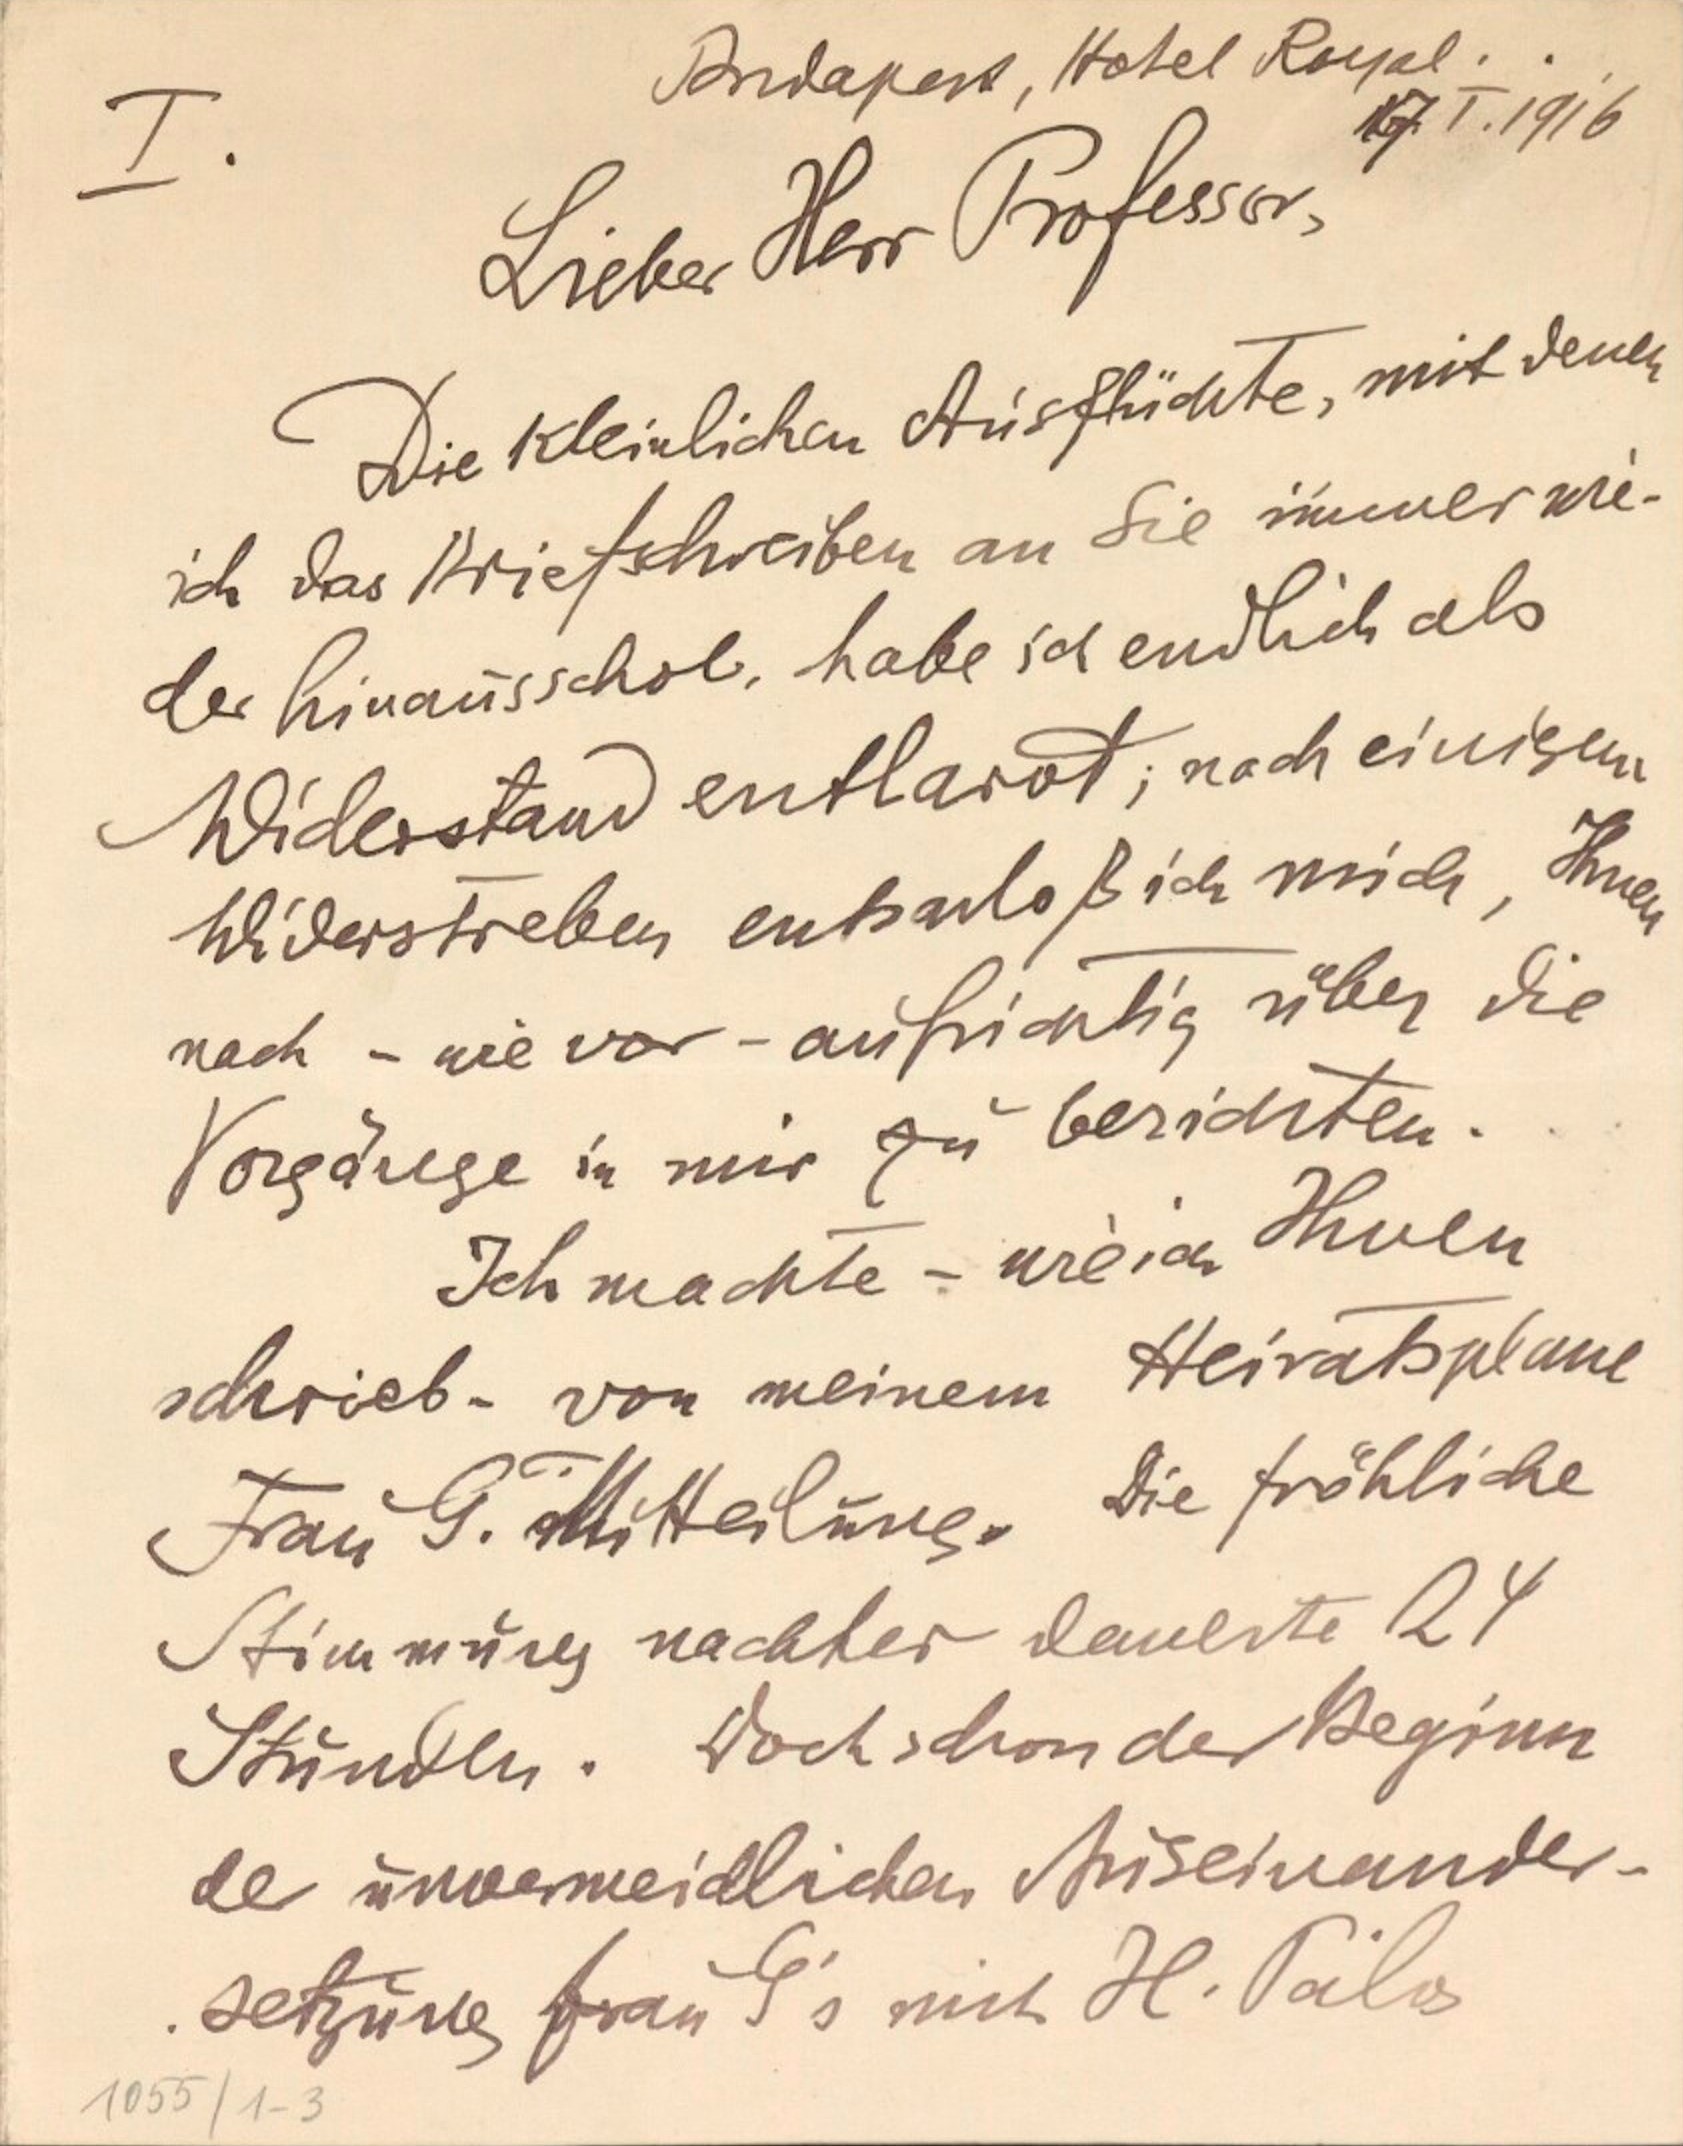 Budapest, Hotel Royal.
I.
17. I. 1916
Lieber Herr Professor,
Die kleinlichen Ausflüchte, mit denen
ich das Briefschreiben an Sie immer wie-
der hinausschob, habe ich endlich als
Widerstand entlarvt; nach einigem
Widerstreben entschloß ich mich, Ihnen
nach - wie vor - aufrichtig über die
Vorgänge in mir zu berichten.
Ich machte - wie ich Ihnen
schrieb - von meinem Heiratsplane
Frau G. Mitteilung. Die fröhliche
Stimmung nachher dauerte 24
Stunden. Doch schon der Beginn
der unvermeidlichen Auseinander-
setzung Frau G's mit H. Pálos
1055/1-3